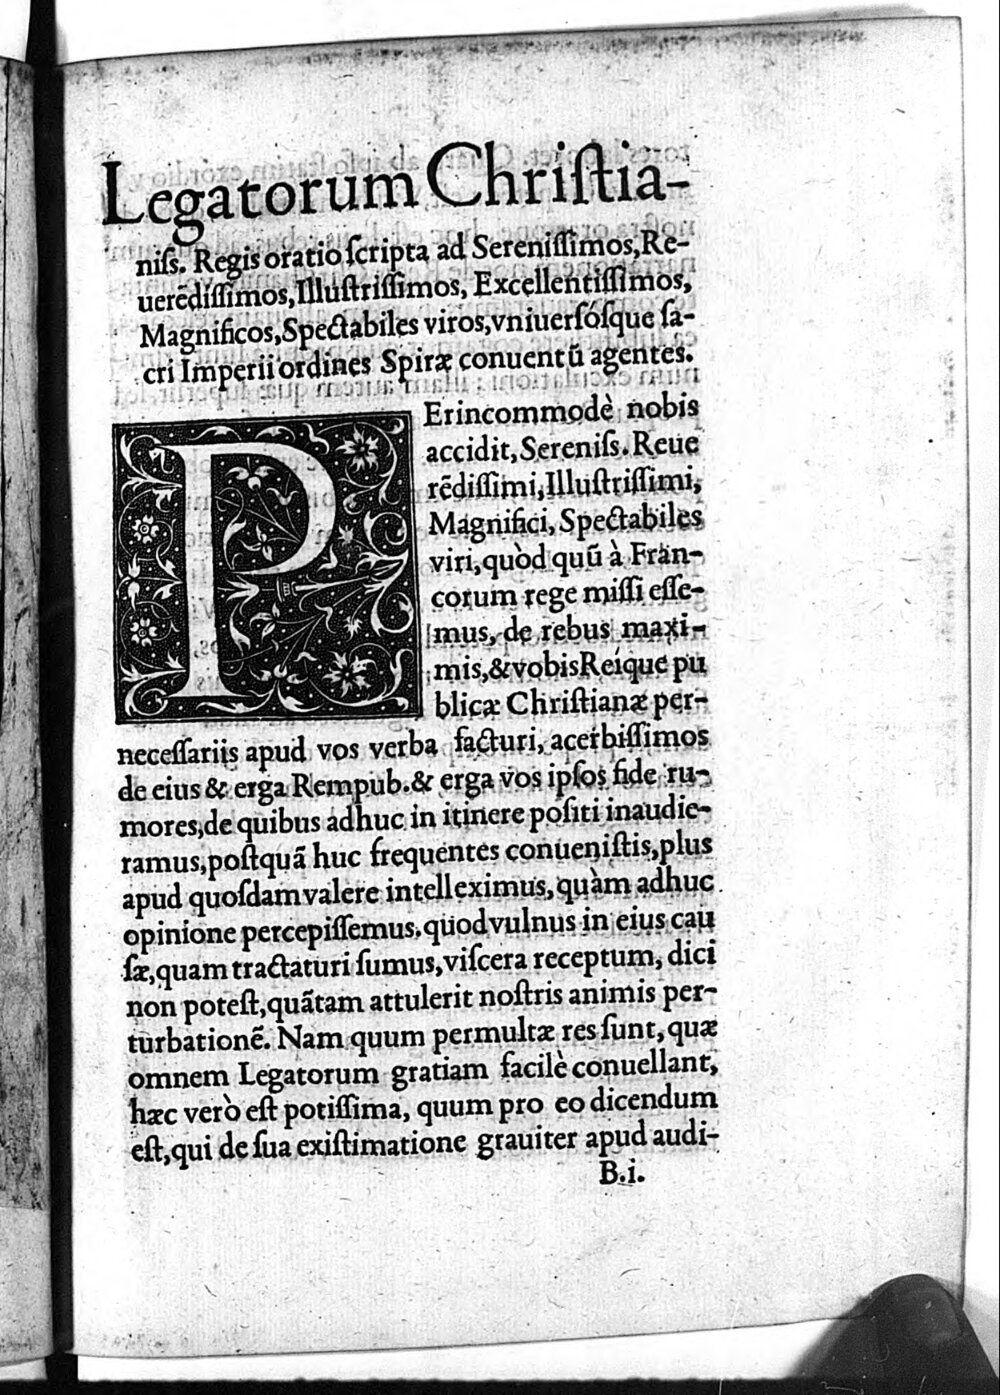 Legatorum Chriſtia-
niſs. Regis oratio ſcripta ad Sereniſſimos,Re-
uerēdiſſimos,Illuſtriſſimos, Excellentiſſimos,
Magnificos,Spectabiles viros,vniuerſósque ſa-
cri Imperii ordines Spiræ conuentū agentes.
PErincommodè nobis
accidit,Sereniſs.Reue
rēdiſſimi,Illuſtriſſimi,
Magnifici, Spectabiles
viri,quòd quū à Fran-
corum rege miſſi eſſe-
mus, de rebus maxi-
mis,&vobisReíque pu
blicæ Chriſtianæ per-
neceſſariis apud vos verba facturi, acerbiſſimos
de eius & erga Rempub.& erga vos ipſos fide ru-
mores,de quibus adhuc in itinere poſiti inaudie-
ramus,poſtquā huc frequentes conueniſtis,plus
apud quoſdam valere intelleximus,quàm adhuc
opinione percepiſſemus.quod vulnus in eius cau
ſæ,quam tractaturi ſumus,viſcera receptum, dici
non poteſt,quātam attulerit noſtris animis per-
turbationē. Nam quum permultæ res ſunt,quæ
omnem Legatorum gratiam facilè conuellant,
hæc verò eſt potiſſima, quum pro eo dicendum
eſt,qui de ſua exiſtimatione grauiter apud audi-
B.i.